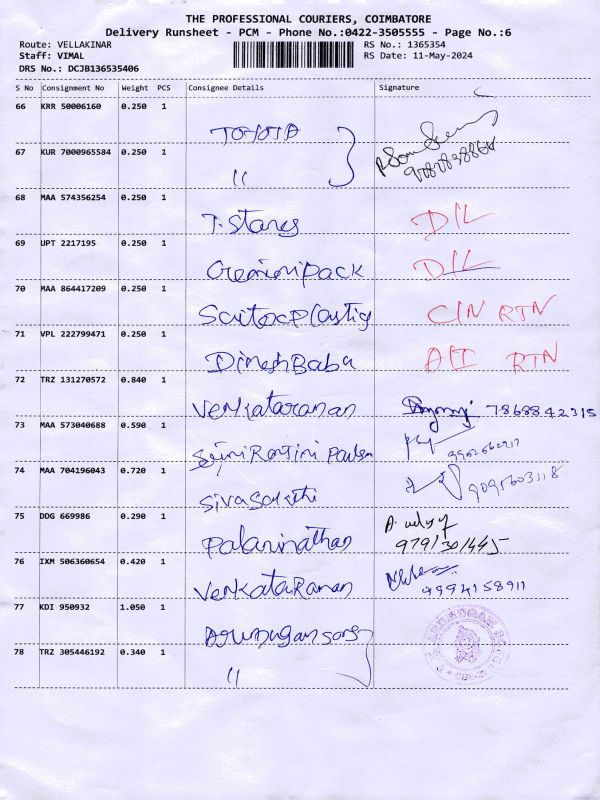 THE PROFESSIONAL COURIERS, COIMBATORE
Delivery Runsheet - PCM - Phone No.:0422-3505555 - Page No.:6
Route: VELLAKINAR RS No.: 1365354
Staff: VIMAL RS Date: 11-May-2024
DRS No.: DCJB136535406
S No Consignment No Weight PCS Consignee Details Signature
66 KRR 50006160 0.250 1
TOYOTA
67 KUR 7000965584 0.250 1
"
68 MAA 574356254 0.250 1
T. Stanes D/L
69 UPT 2217195 0.250 1
Geminipack D/L
70 MAA 864417209 0.250 1
C/N RTN
71 VPL 222799471 0.250 1
Dinesh Baba RTN
72 TRZ 131270572 0.840 1
Venkataraman 7868842315
73 MAA 573040688 0.590 1
74 MAA 704196043 0.720 1
Sivasakthi
75 DDG 669986 0.290 1
Palaninathan
76 IXM 506360654 0.420 1
VenkataRaman 9994158911
77 KDI 950932 1.050 1
78 TRZ 305446192 0.340 1
"